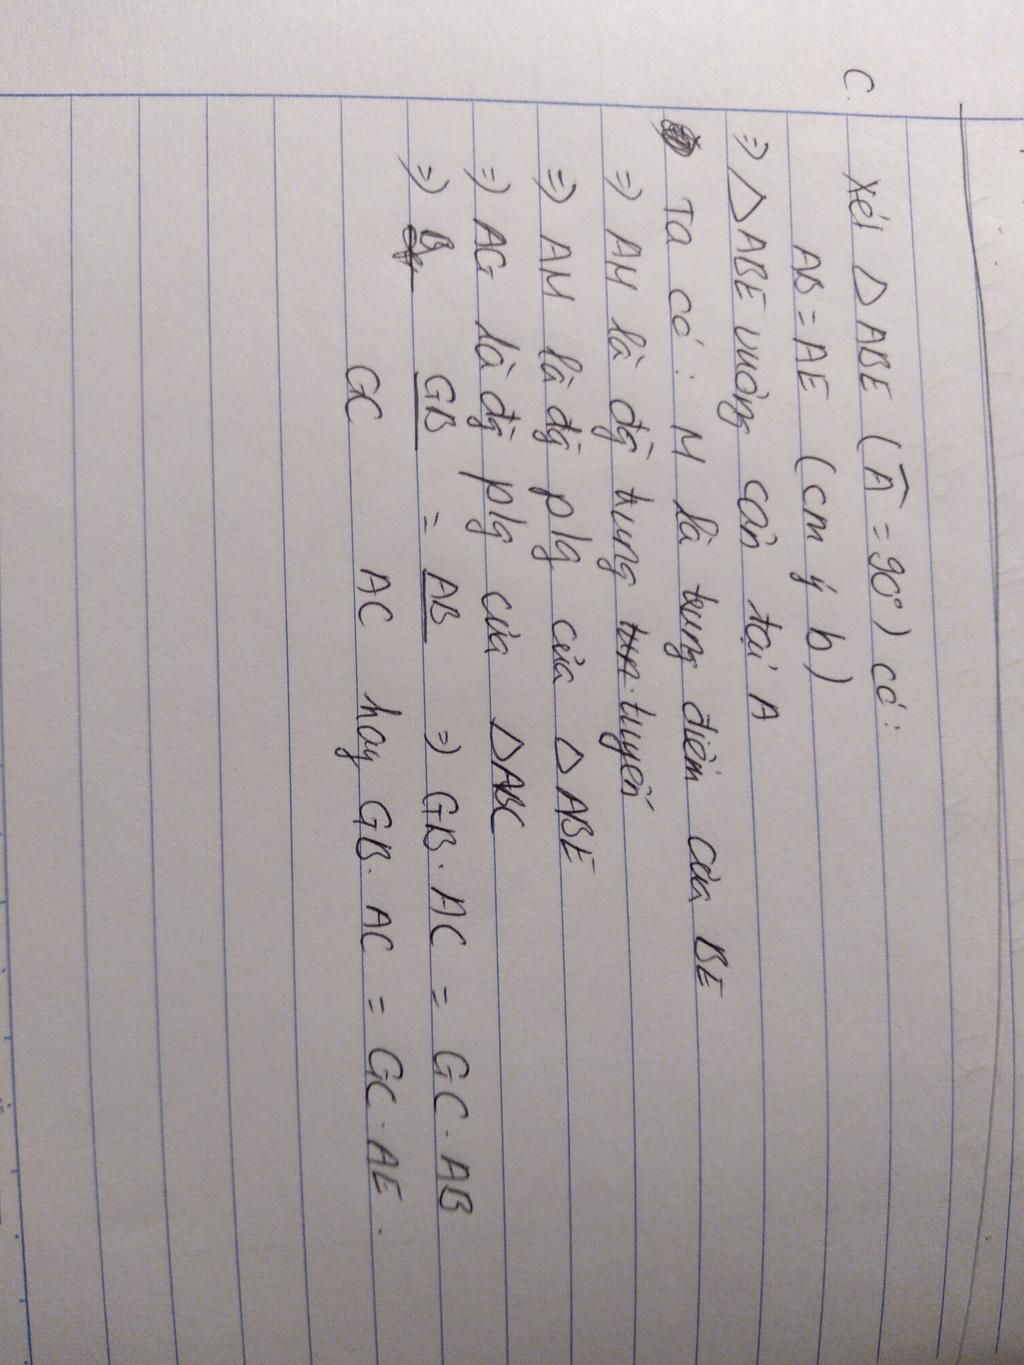 c.
Xét △ABE (Â = 90°) có:
AB = AE (cm ý b)
=> △ABE vuông cân tại A
Ta có: M là trung điểm của BE
=> AM là đg trung tuyến
=> AM là đg plg của △ABE
=> AG là đg plg của △ABC
=> GB/GC = AB/AC => GB.AC = GC.AB
hay GB.AC = GC.AE.